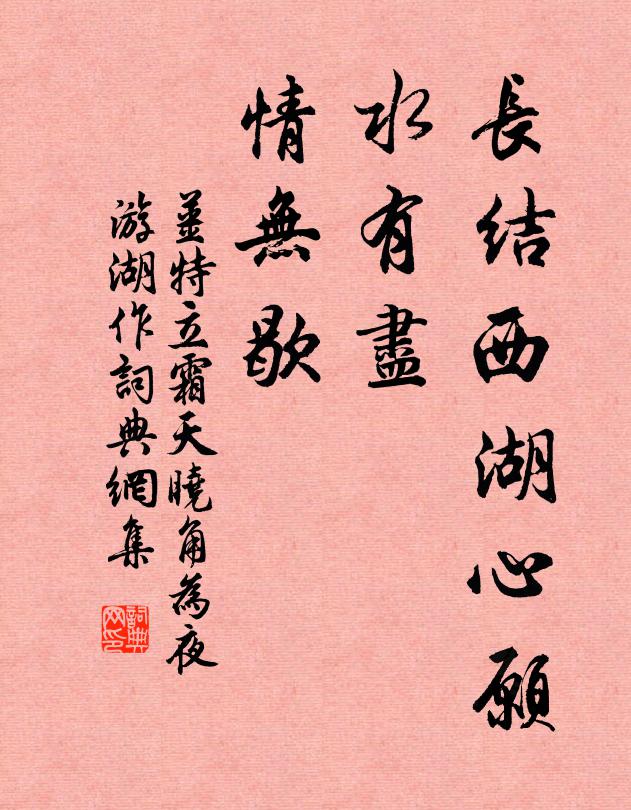 長结西湖心願
水有盡
情無歇
姜特立霜天曉角為夜
游湖作詞典網集
詞典网印